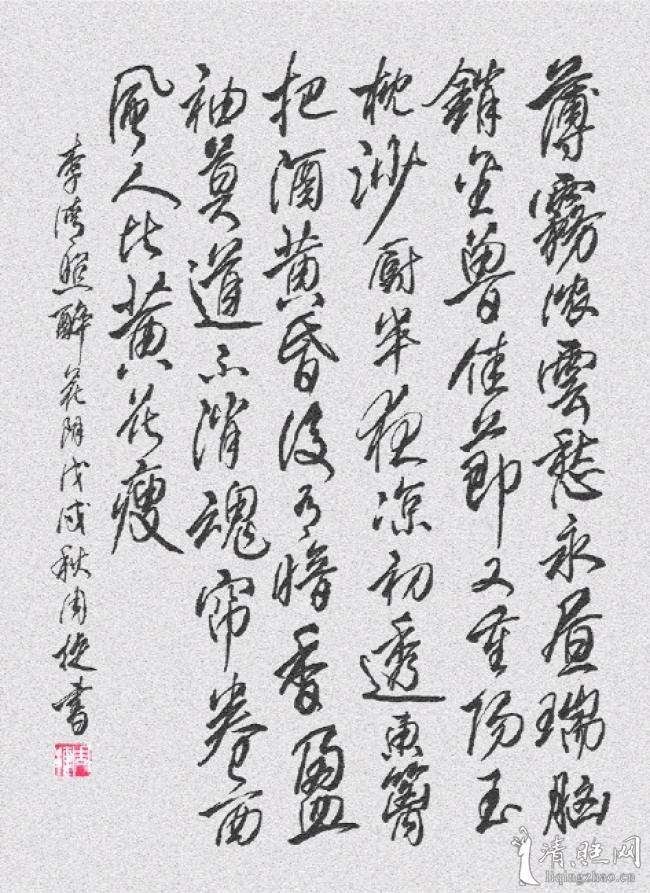 薄霧浓雲愁永昼瑞脑
銷金兽佳節又重阳玉
枕纱厨半夜凉初透東籬
把酒黄昏後有暗香盈
袖莫道不消魂帘卷西
風人比黄花瘦
李清照醉花阴戊戌秋周捷書
清照网
liqingzhao.cn